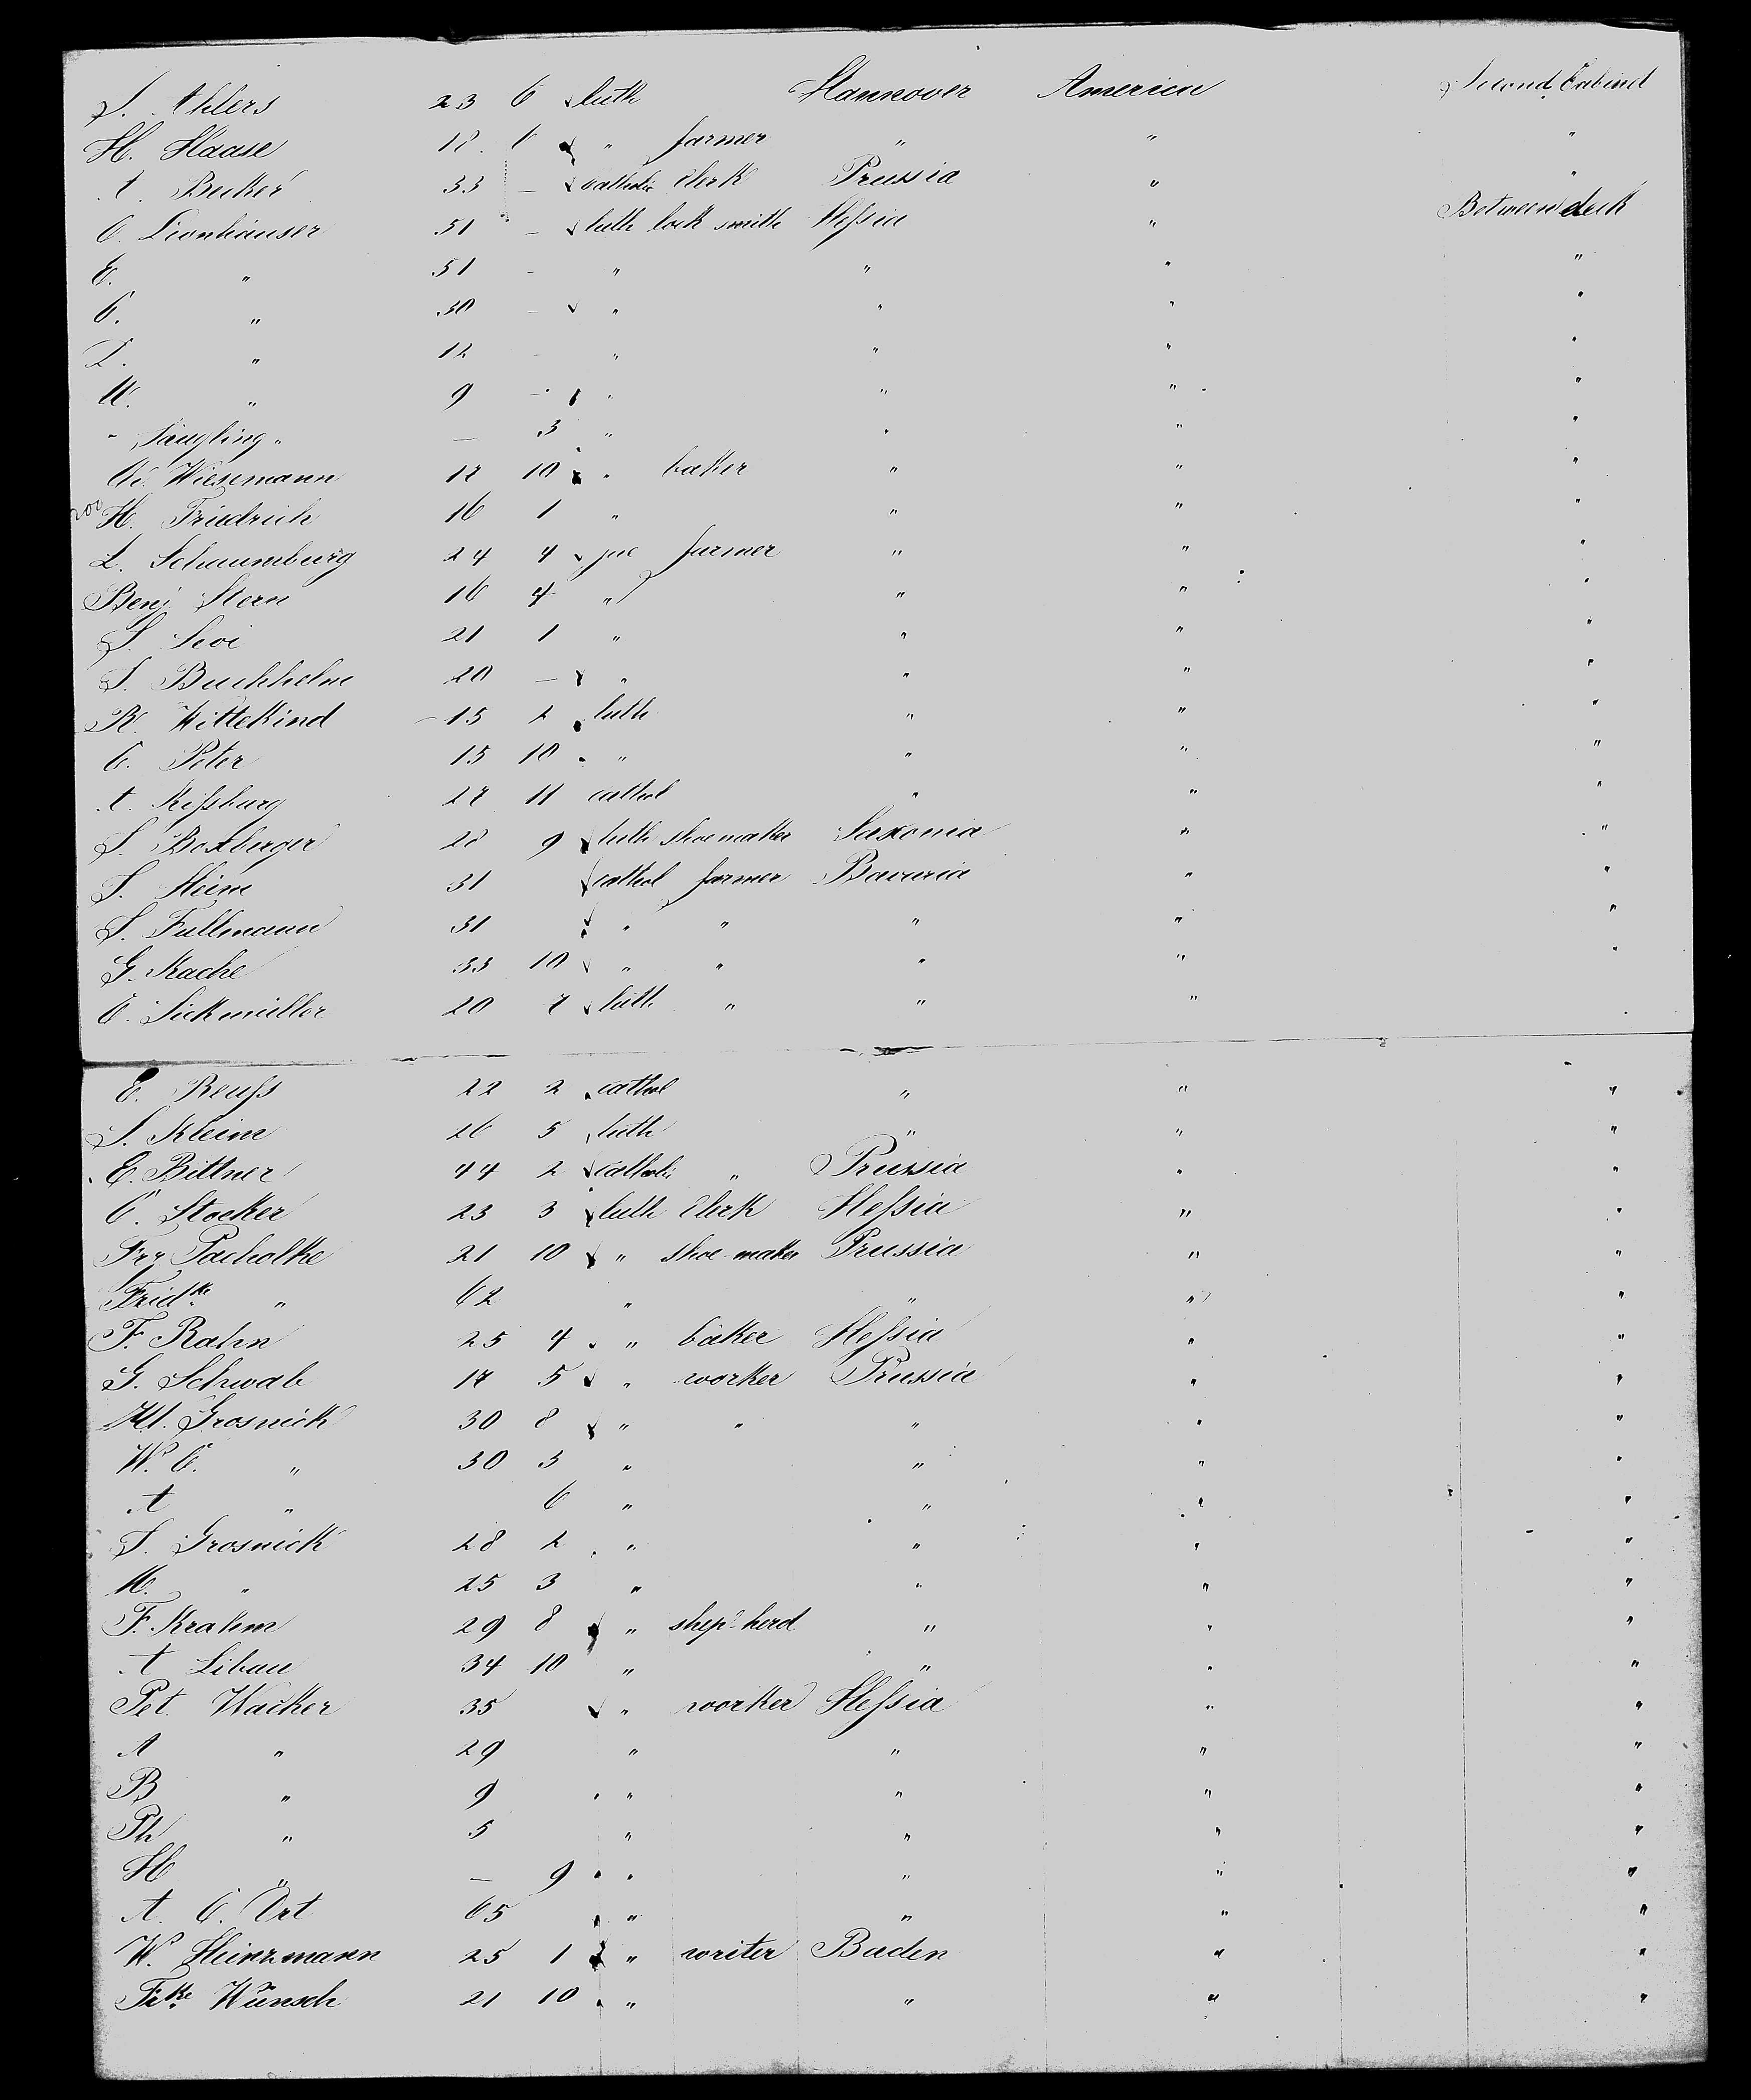 S. Ahlers 23 6 luth Hannover America Second Cabind
H. Haase 18 6 " farmer " " "
A. Becker 33 — catholic clerk Prussia " "
C. Lionhäuser 51 — luth lock smith Hessia " Between deck
E. " 51 - " " " "
C. " 30 - " " " "
L. " 12 - " " " "
" 9 - " " " "
- Säugling " — 3 " " " "
Wiesemann 17 10 " baker " " "
200 H. Friedrich 16 1 " " " "
L. Schaumburg 24 4 jue farmer " " "
Benj Stern 16 4 " " " "
S. 21 1 " " " "
S. Buchholm 20 — " " " "
R. Wittekind 15 2 luth " " "
C. Peter 15 10 " " " "
A. 27 11 cathol " " "
S. Boxberger 28 9 luth shoe maker Saxonia " "
S. Heim 31 cathol farmer Bavaria " "
S. Fullmann 31 " " " " "
G. Kache 33 10 " " " " "
C. Sickmüller 20 7 luth " " "
E. Reuss 22 2 cathol " " "
S. Kleine 26 5 luth " " "
E. Bittner 44 2 catholic " Prussia " "
C. Stocker 23 3 luth clerk Hessia " "
Frz Pacholke 21 10 " shoe-maker Prussia " "
Fridke " 62 " " " "
F. Rahn 25 4 " baker Hessia " "
G. Schwab 17 5 " worker Prussia " "
M. Grosnick 30 8 " " " " "
W. C. " 30 3 " " " "
A " 6 " " " "
S. Grosnick 28 2 " " " "
M. " 25 3 " " " "
F. Krahm 29 8 " shep-herd " " "
A Libau 34 10 " " " "
Pet. Wacker 35 " worker Hessia " "
A " 29 " " " "
B " 9 " " " "
Ph " 5 " " " "
H " — 9 " " " "
A. C. Ort 65 " " " "
W. Heinzmann 25 1 " writer Baden " "
Frke Wünsch 21 10 " " " "